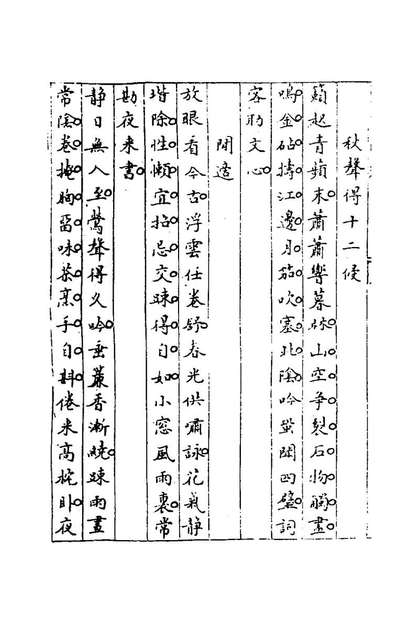 秋聲得十二侵
籟起青蘋末。蕭蕭響暮林。山空争裂石。物觸盡。
鳴金。砧擣江邊月。笳吹塞北陰。吟蛩閙四壁。詞
客助文心。
閒適
放眼看今古。浮雲任卷舒。春光供嘯詠。花氣静
堦除。性懶宜招忌。交踈得自如。小窓風雨裏。常
勘夜来書。
静日無人至。鶯聲得久吟。垂叢香漸繞。踈雨晝
常陰。卷掩胸留味。茶烹手自斟。倦来高枕卧。夜